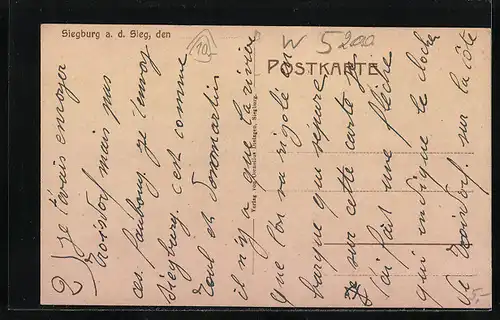 Siegburg a. d. Sieg, den
10
W 5200
POSTKARTE
Verlag von Cornelius Dietzgen, Siegburg.
2) Je t'avais envoyer
Troisdorf mais pas
ces faubourg je t'envoy
Siegburg. c'est comme
Toul et Dommartin
il n'y a que la rivière
que l'on va rigolé en
barque qui sépare
sur cette carte je
j'ai fait une flèche
qui indique le cloche
de Troisdorf sur la côte
5.-